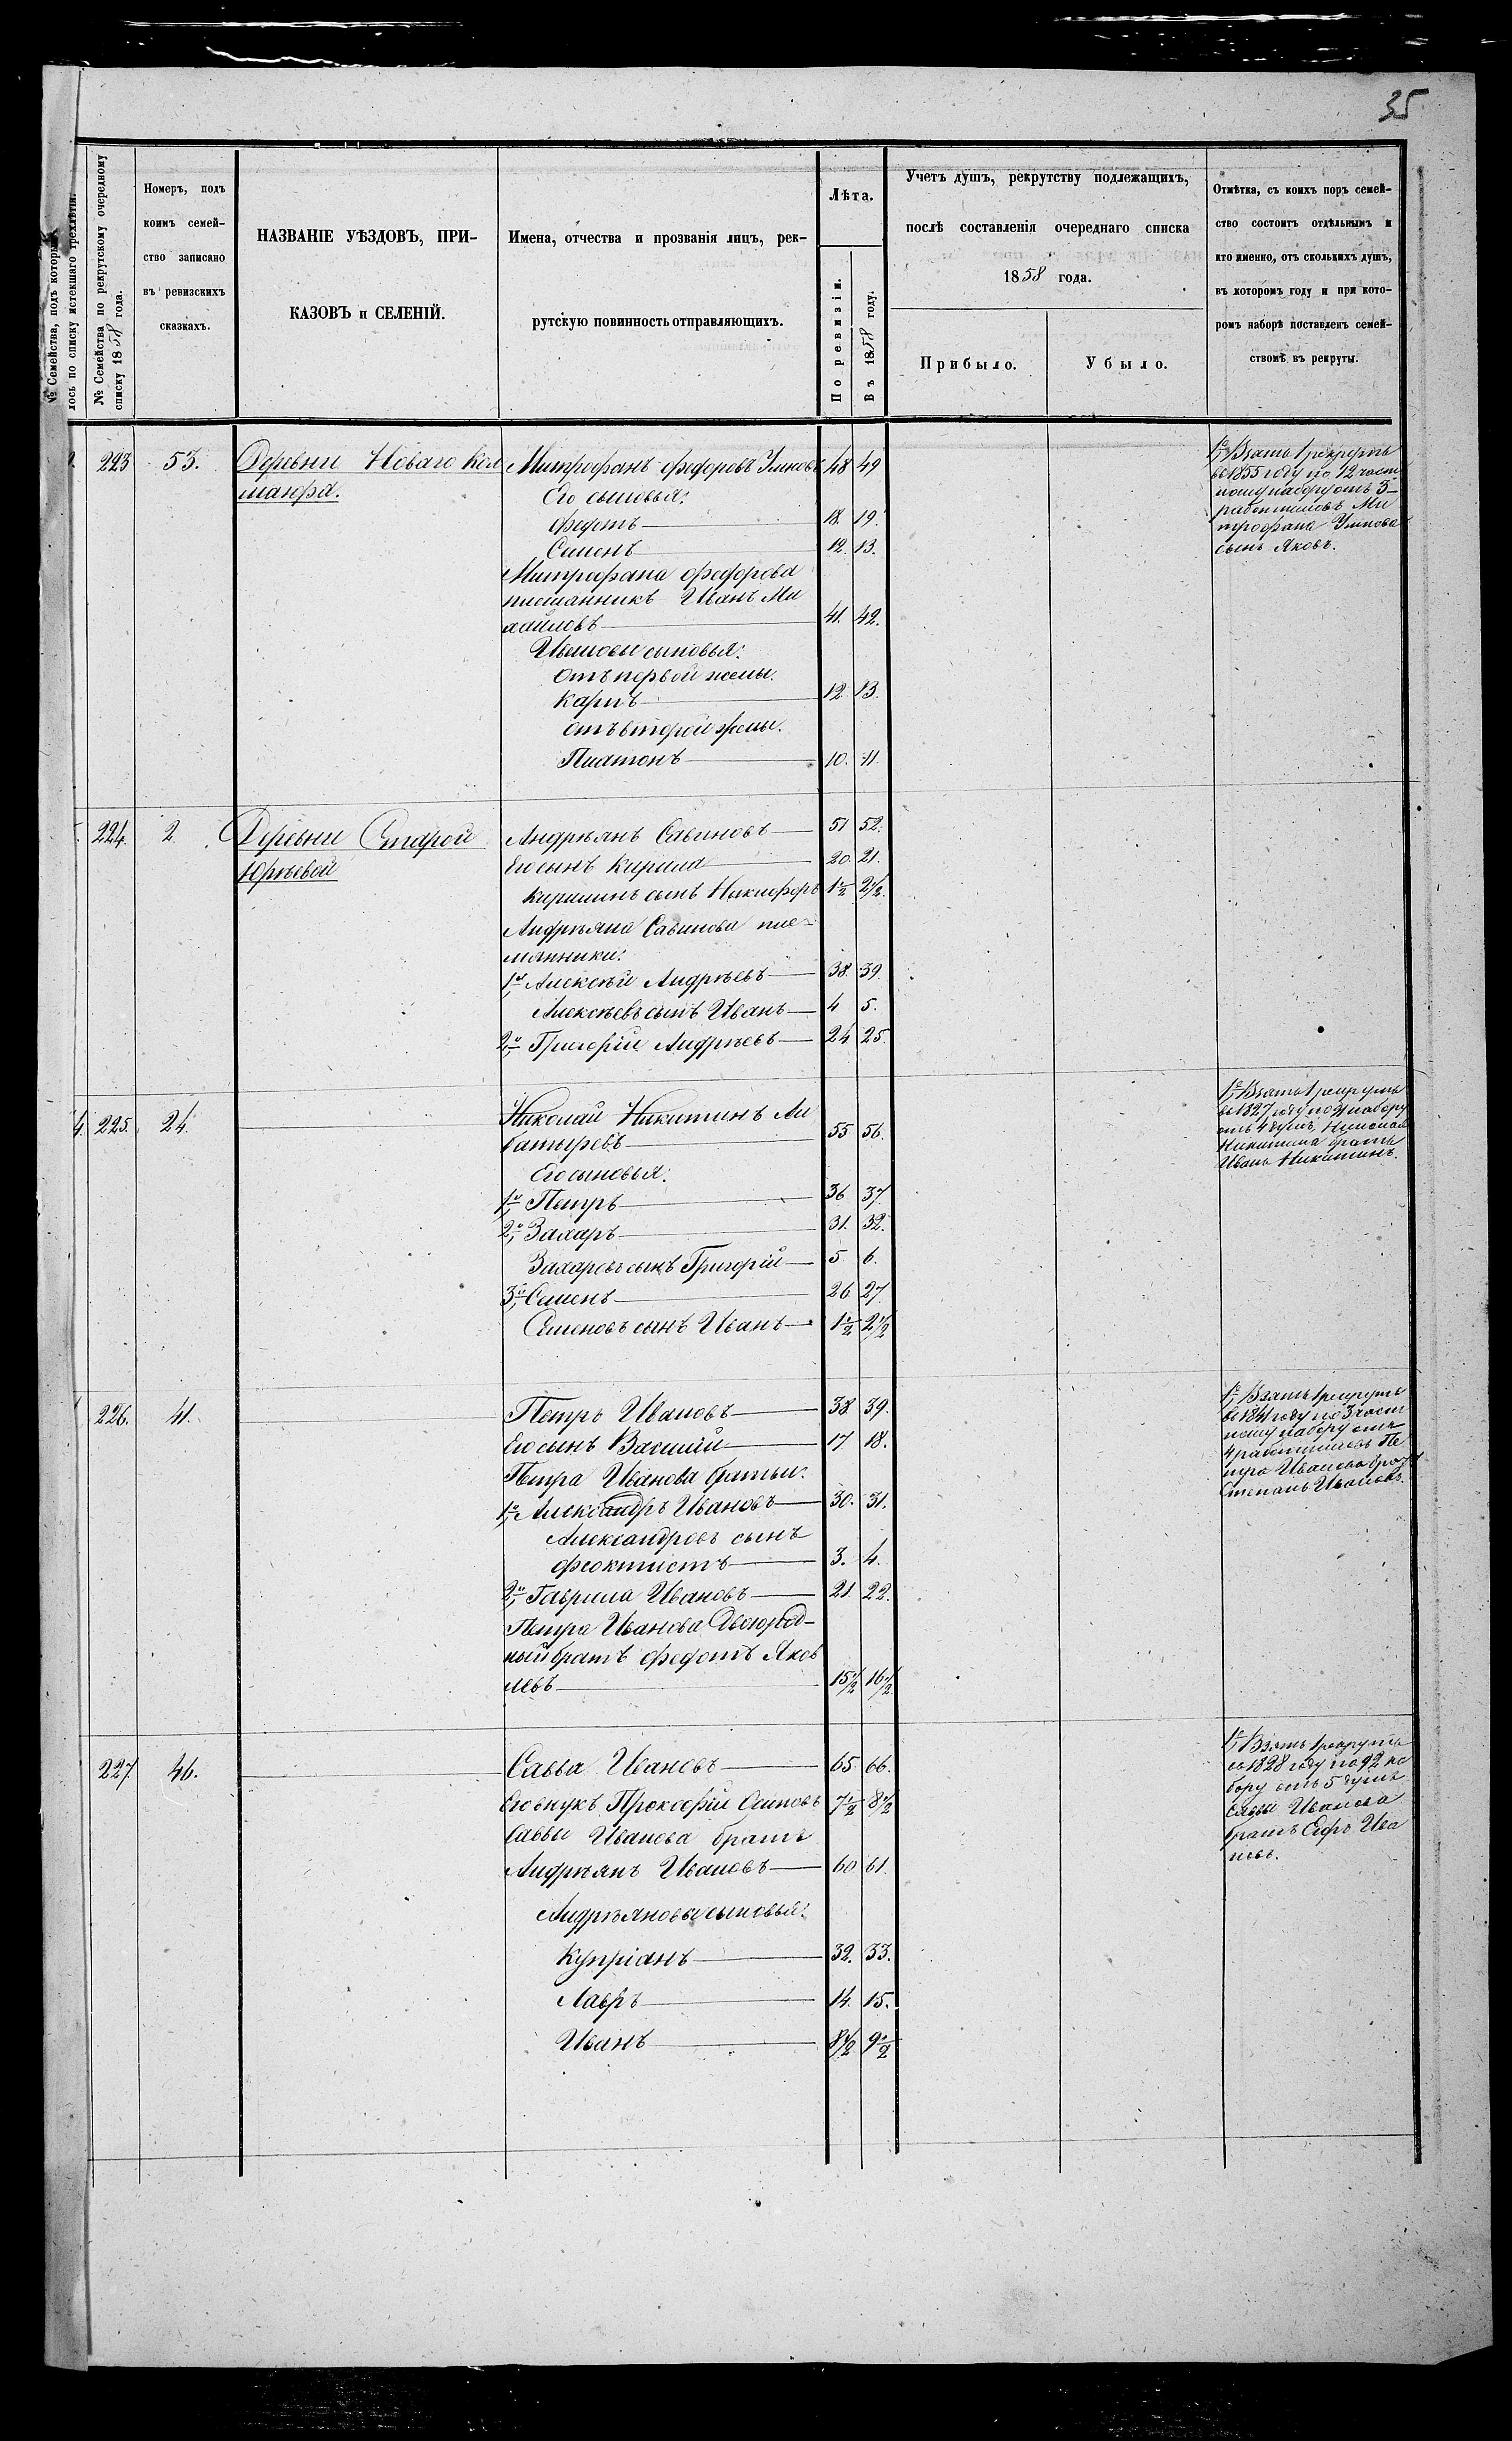 35
№ Семейства, подъ которы
лось по списку истекшаго трехлѣтія.
№ Семейства по рекрутскому очередному
списку 1858 года.
Номеръ, подъ
коимъ семей-
ство записано
въ ревизскихъ
сказкахъ.
НАЗВАНІЕ УѢЗДОВЪ, ПРИ-
КАЗОВЪ и СЕЛЕНІЙ.
Имена, отчества и прозванія лицъ, рек-
рутскую повинность отправляющихъ.
Лѣта.
По ревизіи.
Въ 1858 году.
Учетъ душъ, рекрутству подлежащихъ,
послѣ составленія очереднаго списка
1858 года.
Прибыло.
Убыло.
Отмѣтка, съ коихъ поръ семей-
ство состоитъ отдѣльнымъ и
кто именно, отъ сколькихъ душъ,
въ которомъ году и при кото-
ромъ наборѣ поставленъ семей-
ствомъ въ рекруты.
223 53. Деревни Новаго Кол Митрофанъ Федоровъ 48 49
Его сыновья:
Федотъ 18. 19.
Семенъ 12. 13.
Митрофана Федорова
племянникъ Иванъ Ми
хайловъ 41. 42.
Ивановы сыновья:
отъ первой жены.
Карпъ 12. 13.
отъ второй жены.
Платонъ 10. 11.
1е, Взятъ 1 рекрутъ
въ 1855 году по 12 част
ному набору отъ 3
работниковъ Ми
трофана
сынъ Яковъ.
224. 2. Деревни Старой Андреянъ Савиновъ 51 52.
Юрьевой Его сынъ Кирила 20. 21.
Кирилинъ сынъ Никифоръ 1½ 2½.
Андреяна Савинова пле-
мянники:
1й Алексѣй Андреевъ 38. 39.
Алексѣевъ сынъ Иванъ 4 5.
2й, Григорій Андреевъ 24 25.
4. 225. 24. Николай Никитинъ Ли
батыревъ 55 56.
Его сыновья:
1й, Петръ 36 37.
2й, Захаръ 31. 32.
Захаровъ сынъ Григорій 5 6.
3й, Семенъ 26 27
Семеновъ сынъ Иванъ 1½ 2½
1е, Взятъ 1 рекрутъ
въ 1827 году по набору
отъ 4 душъ, Николая
Никитина братъ
Иванъ Никитинъ.
226. 41. Петръ Ивановъ 38 39.
Его сынъ Василій 17 18.
Петра Иванова братьи:
1й, Александръ Ивановъ 30. 31.
Александровъ сынъ
Феоктистъ 3. 4.
2й, Гаврила Ивановъ 21. 22.
Петра Иванова Двоюрод-
ный братъ Федотъ Яков
левъ 15½ 16½
1е, Взятъ 1 рекрутъ
въ 1841 году по 3 част
ному набору отъ
4 работниковъ Пе
тра Иванова бра
Степанъ Ивановъ.
227. 46. Савва Ивановъ 65. 66.
Его внукъ Прокофій Осиповъ 7½ 8½
Саввы Иванова братъ
Андреянъ Ивановъ 60 61.
Андреяновы сыновья:
Купріанъ 32. 33.
Лавръ 14. 15.
Иванъ 8½ 9½
1е, Взятъ 1 рекрутъ
въ 1828 году по 92 на
бору отъ 5 душъ
Саввы Иванова
братъ Ива
новъ.